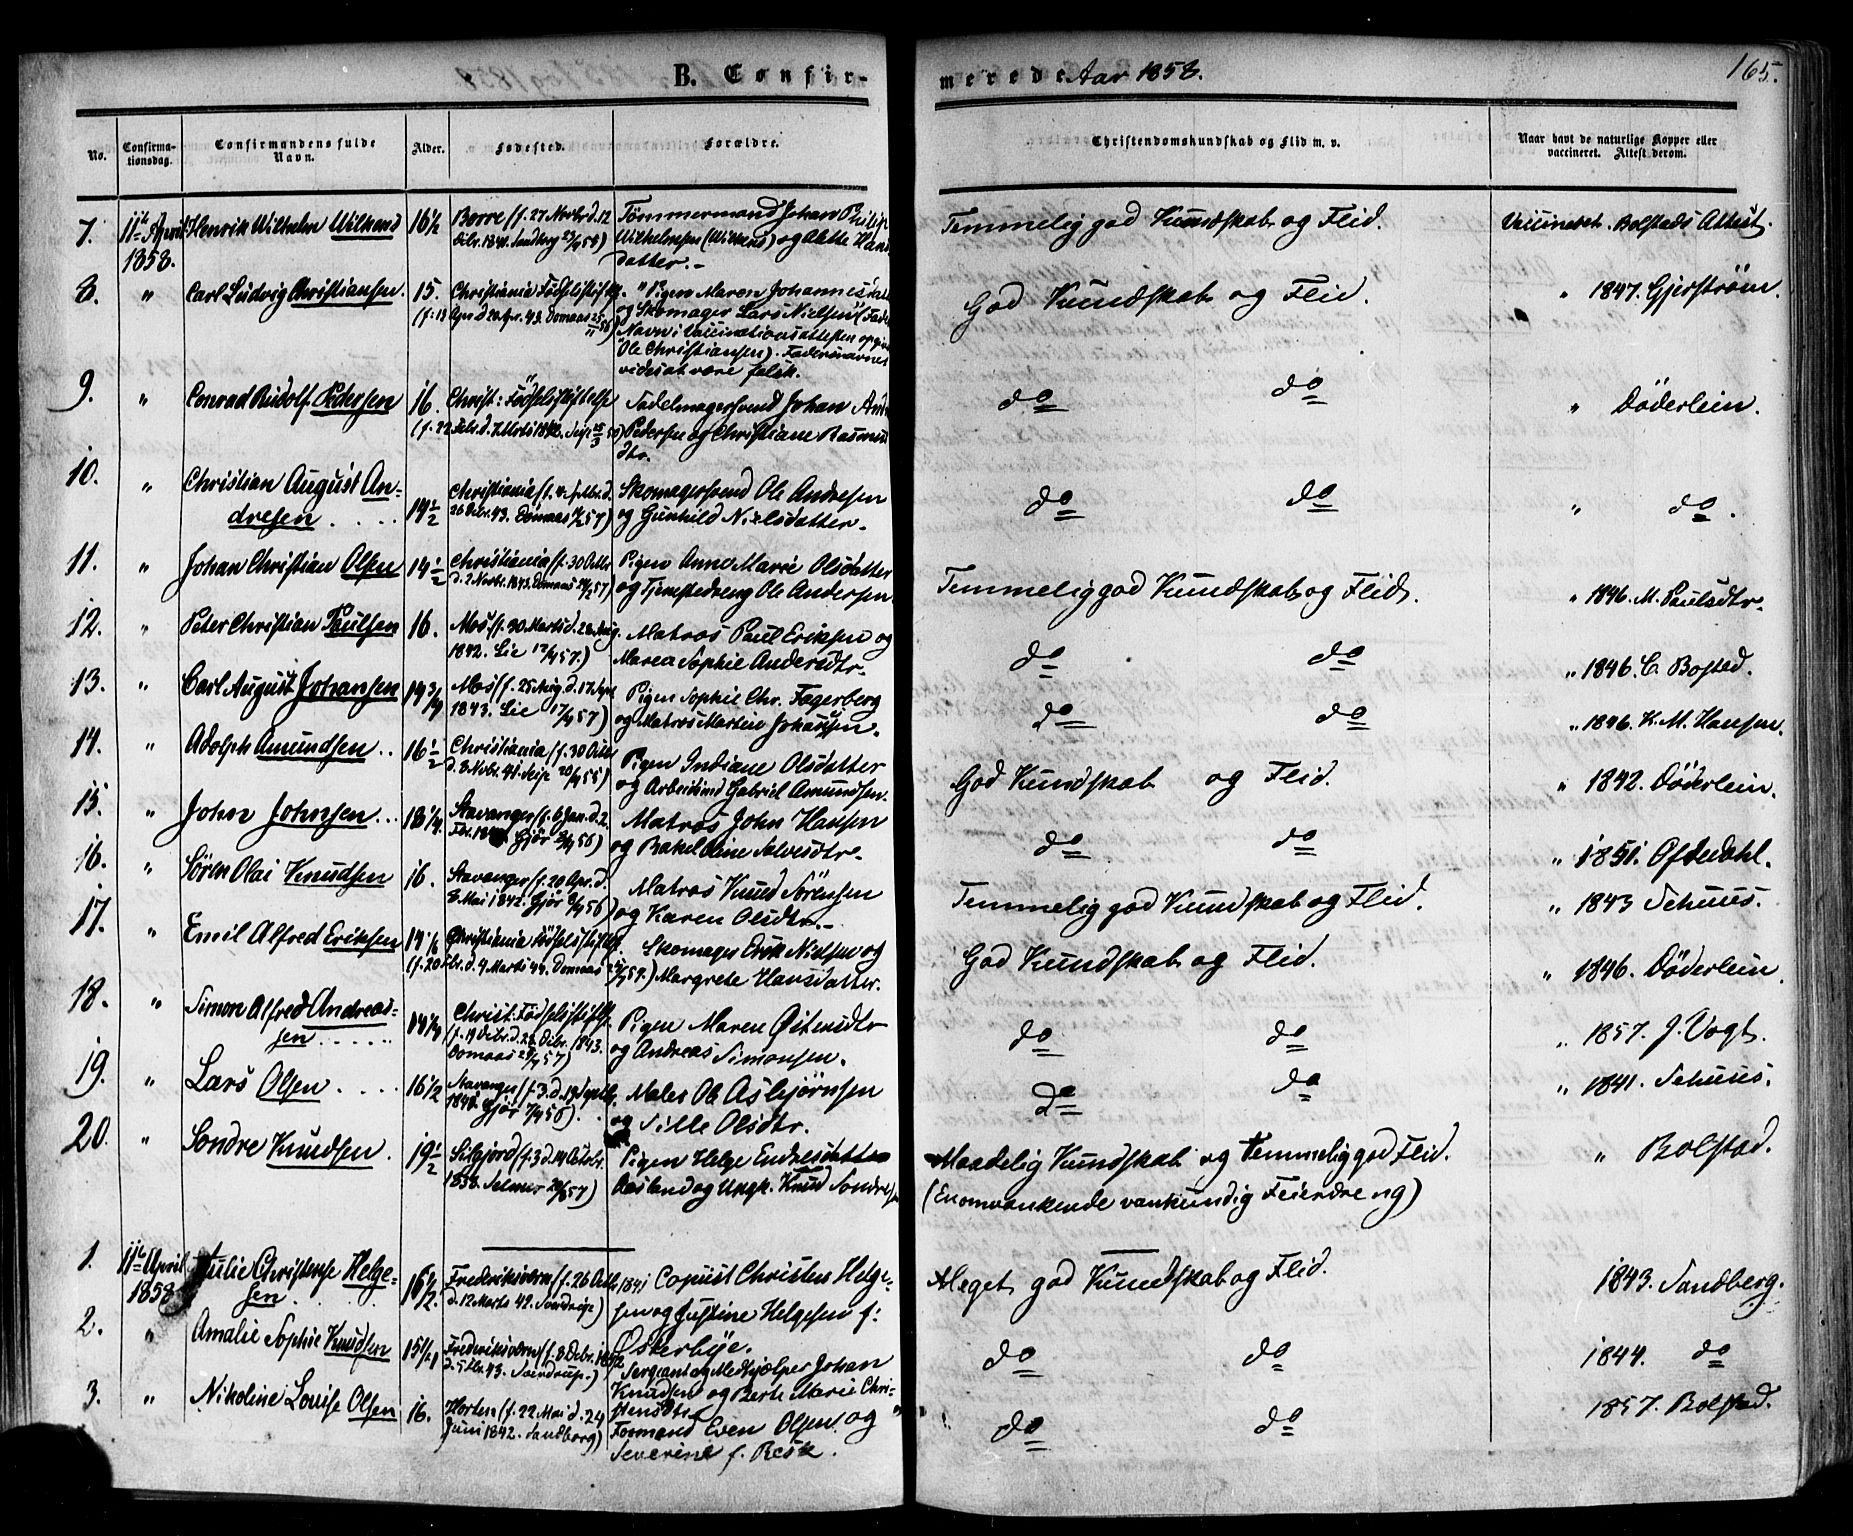 B. Confirmerede Aar 1858. 165.
No. Confirmationsdag. Confirmandens fulde Navn. Alder. Fødested. Forældre. Christendomskundskab og Flid m. v. Naar havt de naturlige Kopper eller vaccineret. Attest derom.
7. 11te April 1858. Henrik Wilhelm Wilkens 16 1/2 Borre (f. 27 Novbr. d. 12 Tømmermand Johan Philip Wilhelmsen (Wilkens) og datter.- Temmelig god Kundskab og Flid. Vaccineret. Bolstads Attest.
8. " Carl Ludvig Christiansen. 15. Christiania Fødselsstift. Pigen Maren Johannesdatt og Skomager Lars Nielsen (Fade Navn i Vaccinationsattesten opgiv Ole Christiansen). Fadersnavnet vides at være falsk. God Kundskab og Flid. " 1847. Gjerstrøm.
9. " Conrad Rudolf Pedersen 16. Christ: Fødselsstiftelse Sadelmagersvend Johan Pedersen og Christiane Rasmus dtr. do do " Døderlein.
10. " Christian August Andresen 14 1/2 Christiania Skomagersvend Ole Andresen og Gunhild Nielsdatter. do do " do.
11. " Johan Christian Olsen 14 1/2 Christiania (f. 30 Octbr d. 2 Novbr. 1843. Pigen Anne Marie Olsdatter og Ole Andersen Temmelig god Kundskab og Flid. " 1846. M. Paulsdtr.
12. " Peter Christian Paulsen 16. Mos (f. 30 Marts d. 28 Aug. 1842. Lie Matros Paul Eriksen og Maren Sophie Andersdtr. do do " 1846. C. Bosted.
13. " Carl August Johansen 14 3/4 Mos (f. 25 Aug. d. 17 1843. Lie 17/4 57) Pigen Sophie Chr. Fagerberg og Matros Martin Johansen. do do " 1846. K. M. Hansen.
14. " Adolph Amundsen.. 16 1/2 Christiania (f. 30 Octbr d. 8 Novbr. 41. Pigen Indiane Olsdatter og Arbeidsmd Gabriel Amundsen. God Kundskab og Flid. " 1842. Døderlein.
15. " John Johnsen... 18 1/4. Stavanger (f. 6 Jan. d. 2. Matros John Hansen og Rakel do do " 1851. Oftedahl.
16. " Søren Olai Knudsen 16. Stavanger (f. 20 Apr. d. 8 Mai 1842. Gjør Matros Knud Sørensen og Karen Olsdtr.- Temmelig god Kundskab og Flid. " 1843
17. " Emil Alfred Eriksen Christiania Fødselsstift. d. 4 Marts 44. Domaas Skomager Erik Nielsen og Margrete Hansdatter. God Kundskab og Flid. " 1846. Døderlein.
18. " Simon Alfred Andreassen..... 14 1/4 Christ: Fødselsstift. (f. 19 Decbr. d. 26 Decbr. 1843. Domaas Pigen Maren Østensdtr og Andreas Simonsen. do do " 1857. J. Vogt.
19. " Lars Olsen.... 16 1/2 Stavanger (f. 3. d. 19 Septbr. Maler Ole Asbjørnsen og Sille Olsdtr. do do " 1841.
20. " Sondre Knudsen. 19 1/2 (f. 3 d. 14 Octobr. 1838. Selmer Pigen Helge Endresdatter Aasland og Ungk. Knud Sondresen Maadelig Kundskab og temmelig god Flid. (En omvankende vankundig Feierdreng) " Bolstad.
1. 11te April 1858 Julie Christense Helgesen 16 1/2. Frederiksværn (f. 26 Octb. 1841 d. 12 Marts 42. Sverdrup) Copiist Christen Helgesen og Justine Helgesen f: Østerbye. Meget god Kundskab og Flid. 1843. Sandberg.
2. " Amalie Sophie Knudsen Frederiksværn (f. 8 Decbr. 1842 43. Sverdrup.) Sergeant og Medhjælper Johan Knudsen og Berte Marie Christensdtr. do do 1844. do
3. " Nikoline Louise Olsen 16. Horten (f. 22 Mai d. 24 Juni 1842. Sandberg) Formand Even Olsen og Severine f. Besk. do do 1857. Bolstad.